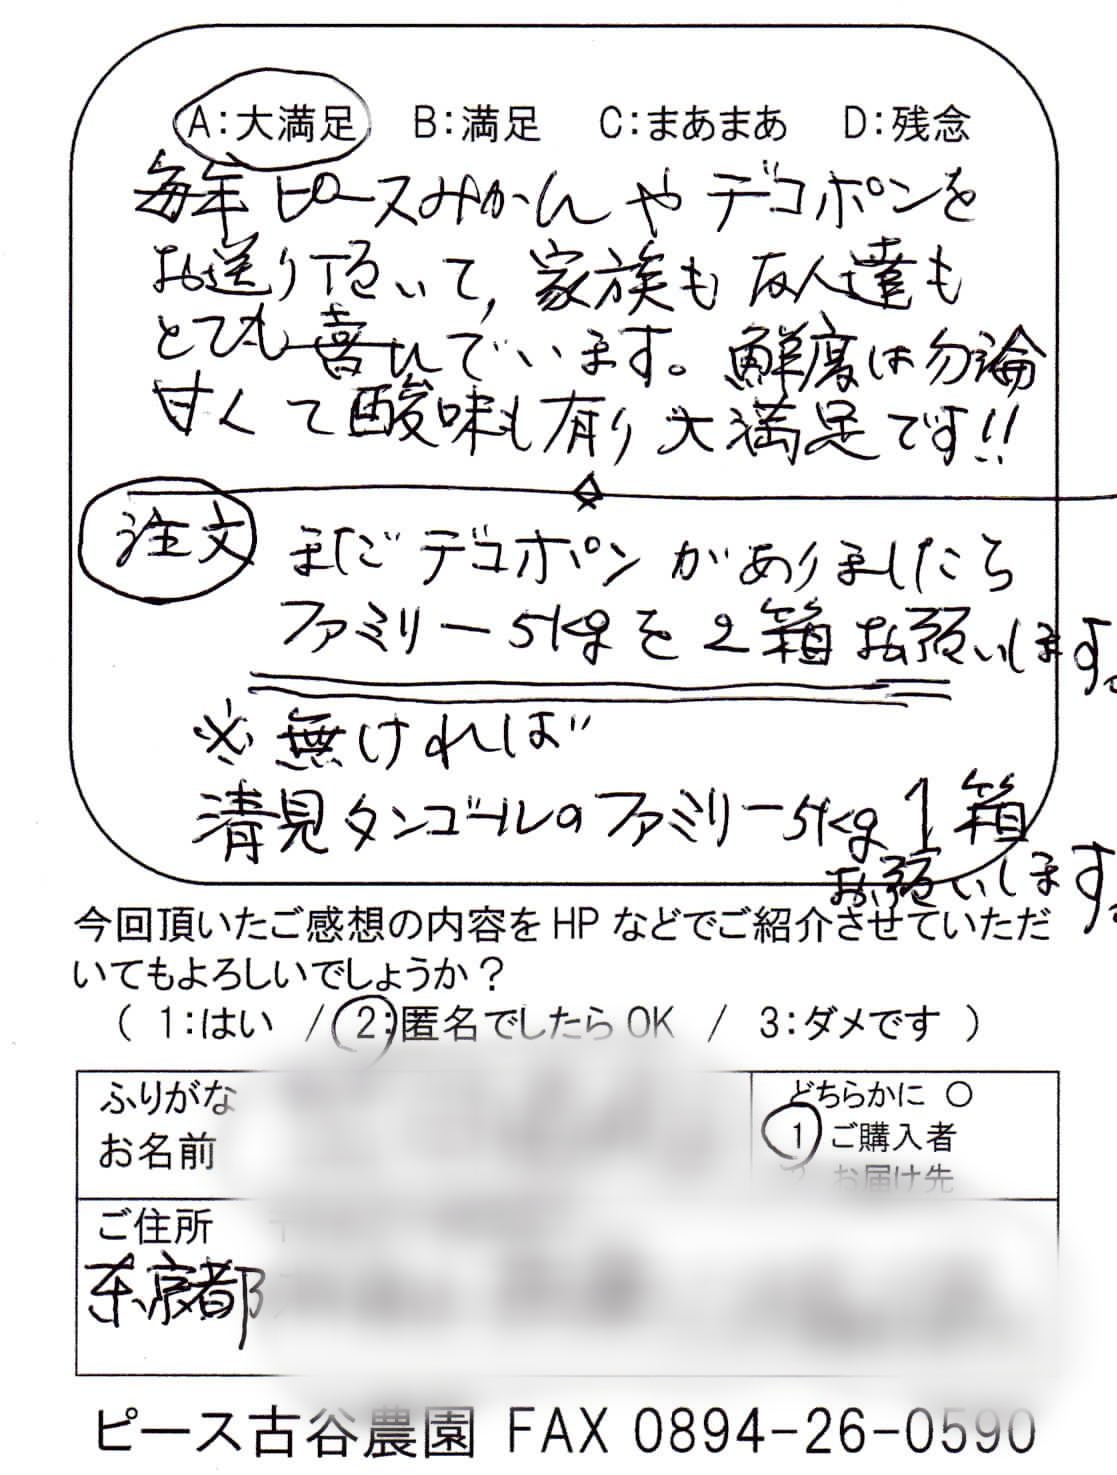 A:大満足 B:満足 C:まあまあ D:残念
毎年ピースみかんやデコポンを
お送り頂いて、家族も友人達も
とても喜んでいます。鮮度は勿論
甘くて酸味も有り大満足です!!
注文 まだデコポンがありましたら
ファミリー5kgを2箱お願いします。
※無ければ
清見タンゴールのファミリー5kg 1箱
お願いします。
今回頂いたご感想の内容をHPなどでご紹介させていただ
いてもよろしいでしょうか?
( 1:はい / 2:匿名でしたらOK / 3:ダメです )
ふりがな
お名前
どちらかに ○
1 ご購入者
2 お届け先
ご住所
東京都
ピース古谷農園 FAX 0894-26-0590